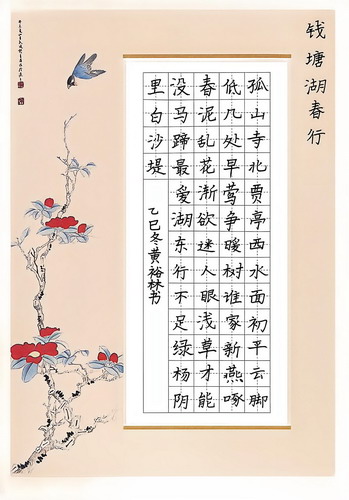 钱塘湖春行
孤山寺北贾亭西水面初平云脚
低几处早莺争暖树谁家新燕啄
春泥乱花渐欲迷人眼浅草才能
没马蹄最爱湖东行不足绿杨阴
里白沙堤
乙巳冬黄裕林书